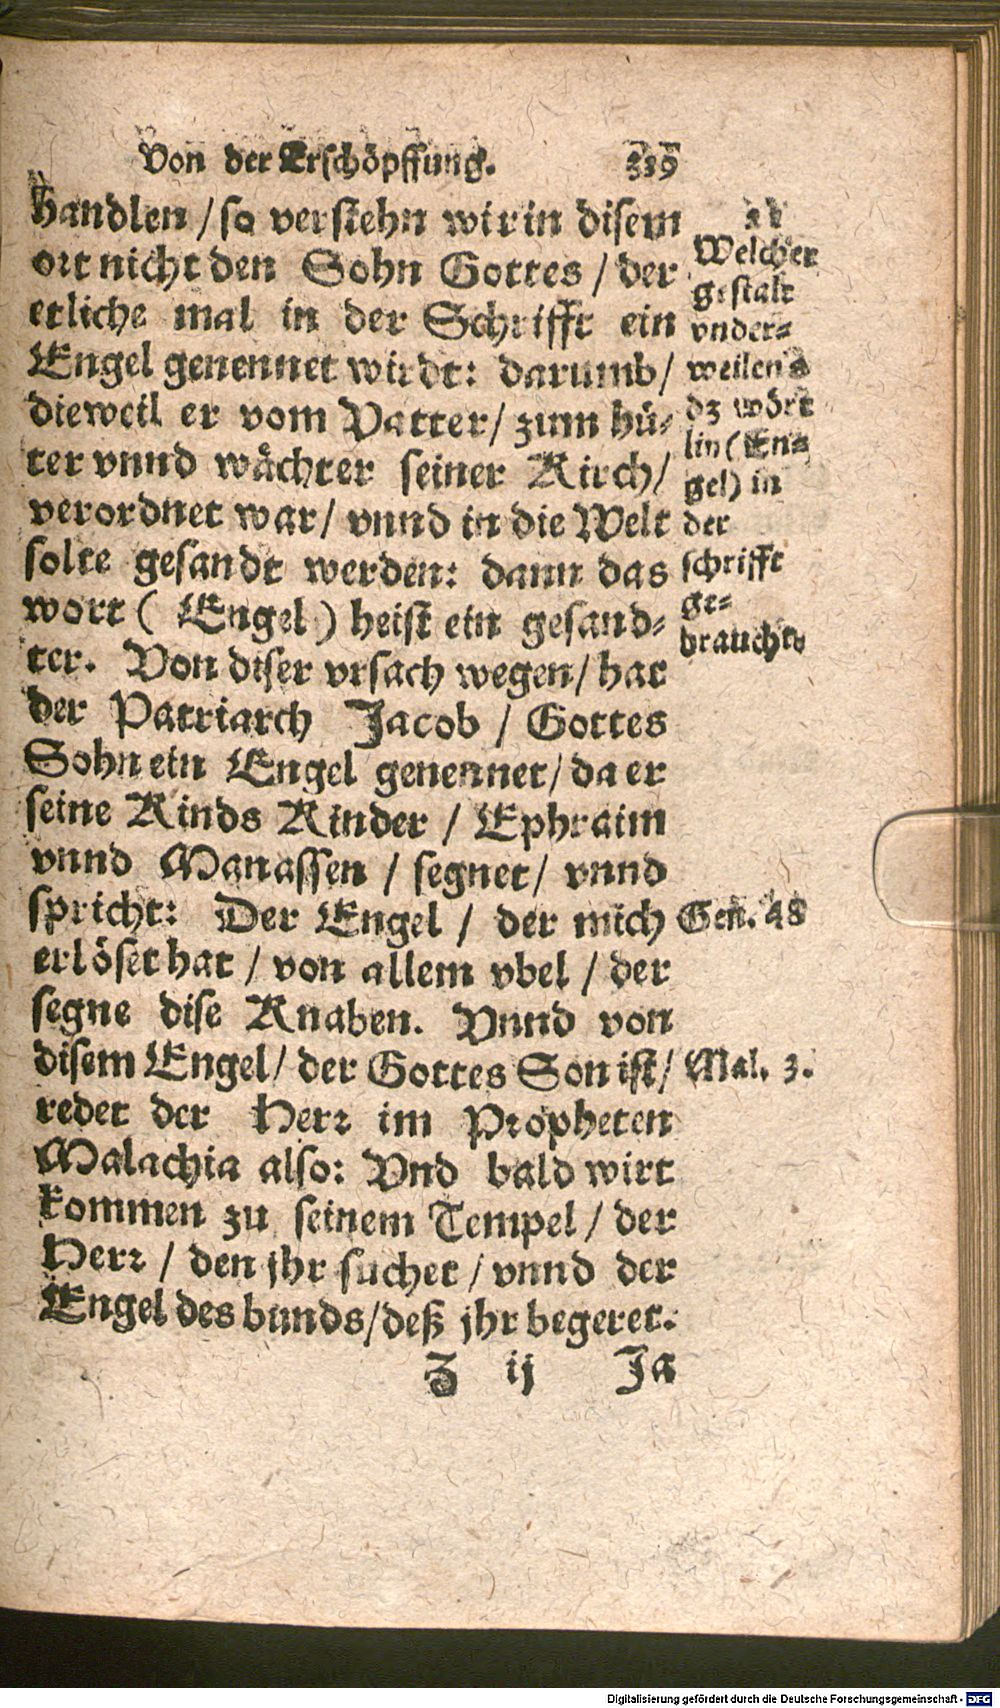 Von der Erschöpffung. 339
handlen / so verstehn wir in disem
ort nicht den Sohn Gottes / der
etliche mal in der Schrifft ein
Engel genennet wirdt: darumb /
dieweil er vom Vatter / zum hü⸗
ter vnnd wächter seiner Kirch /
verordnet war / vnnd in die Welt
solte gesandt werden: dann das
wort ( Engel ) heist ein gesand⸗
ter. Von diser vrsach wegen / hat
der Patriarch Jacob / Gottes
Sohn ein Engel genennet / da er
seine Kinds Kinder / Ephraim
vnnd Manassen / segnet / vnnd
spricht: Der Engel / der mich
erlöset hat / von allem vbel / der
segne dise Knaben. Vnnd von
disem Engel / der Gottes Son ist /
redet der Herr im Propheten
Malachia also: Vnd bald wirt
kommen zu seinem Tempel / der
Herr / den jhr suchet / vnnd der
Engel des bunds / deß jhr begeret.
Z ij Ja
Welcher
gestalt
vnder⸗
weilens
dz wört
lin (En⸗
gel) in
der
schrifft
ge⸗
braucht.
Gen. 48
Mal. 3.
Digitalisierung gefördert durch die Deutsche Forschungsgemeinschaft - DFG